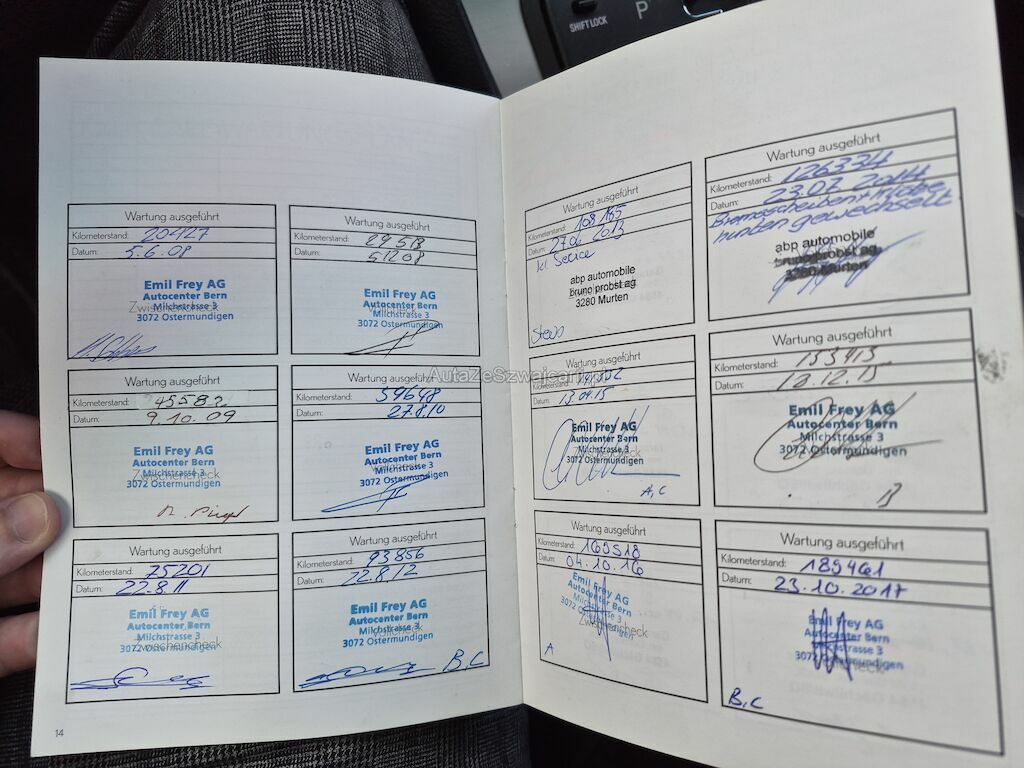 SHIFT LOCK
P
Wartung ausgeführt
Kilometerstand: 20427
Datum: 5.6.08
Emil Frey AG
Autocenter Bern
Zwischencheck
Milchstrasse 3
3072 Ostermundigen
Wartung ausgeführt
Kilometerstand: 29518
Datum: 51208
Emil Frey AG
Autocenter Bern
Milchstrasse 3
3072 Ostermundigen
Wartung ausgeführt
Kilometerstand: 45582
Datum: 9.10.09
Emil Frey AG
Autocenter Bern
Milchstrasse 3
Zwischencheck
3072 Ostermundigen
Wartung ausgeführt
Kilometerstand: 59648
Datum: 27.8.10
Emil Frey AG
Autocenter Bern
Milchstrasse 3
3072 Ostermundigen
Wartung ausgeführt
Kilometerstand: 75201
Datum: 22.8.11
Emil Frey AG
Autocenter Bern
Milchstrasse 3
Zwischencheck
3072 Ostermundigen
Wartung ausgeführt
Kilometerstand: 93856
Datum: 22.8.12
Emil Frey AG
Autocenter Bern
Milchstrasse 3
3072 Ostermundigen
B,C
14
Wartung ausgeführt
Kilometerstand: 108185
Datum: 27.06 2013
kl. Service
abp automobile
bruno probst ag
3280 Murten
Wartung ausgeführt
Kilometerstand: 126334
Datum: 23.07 2014
Bremsscheiben + Klötze
hunten gewechselt
abp automobile
bruno probst ag
3280 Murten
Wartung ausgeführt
Kilometerstand:
Datum: 13.04.15
Emil Frey AG
Autocenter Bern
Milchstrasse 3
3072 Ostermundigen
Zwischencheck
A, C
Wartung ausgeführt
Kilometerstand: 153415
Datum: 18.12.15
Emil Frey AG
Autocenter Bern
Milchstrasse 3
3072 Ostermundigen
B
Wartung ausgeführt
Kilometerstand: 169518
Datum: 04.10.16
Emil Frey AG
Autocenter Bern
Milchstrasse 3
3072 Ostermundigen
Zwischencheck
A
Wartung ausgeführt
Kilometerstand: 189461
Datum: 23.10.2017
Emil Frey AG
Autocenter Bern
Milchstrasse 3
3072 Ostermundigen
B,C